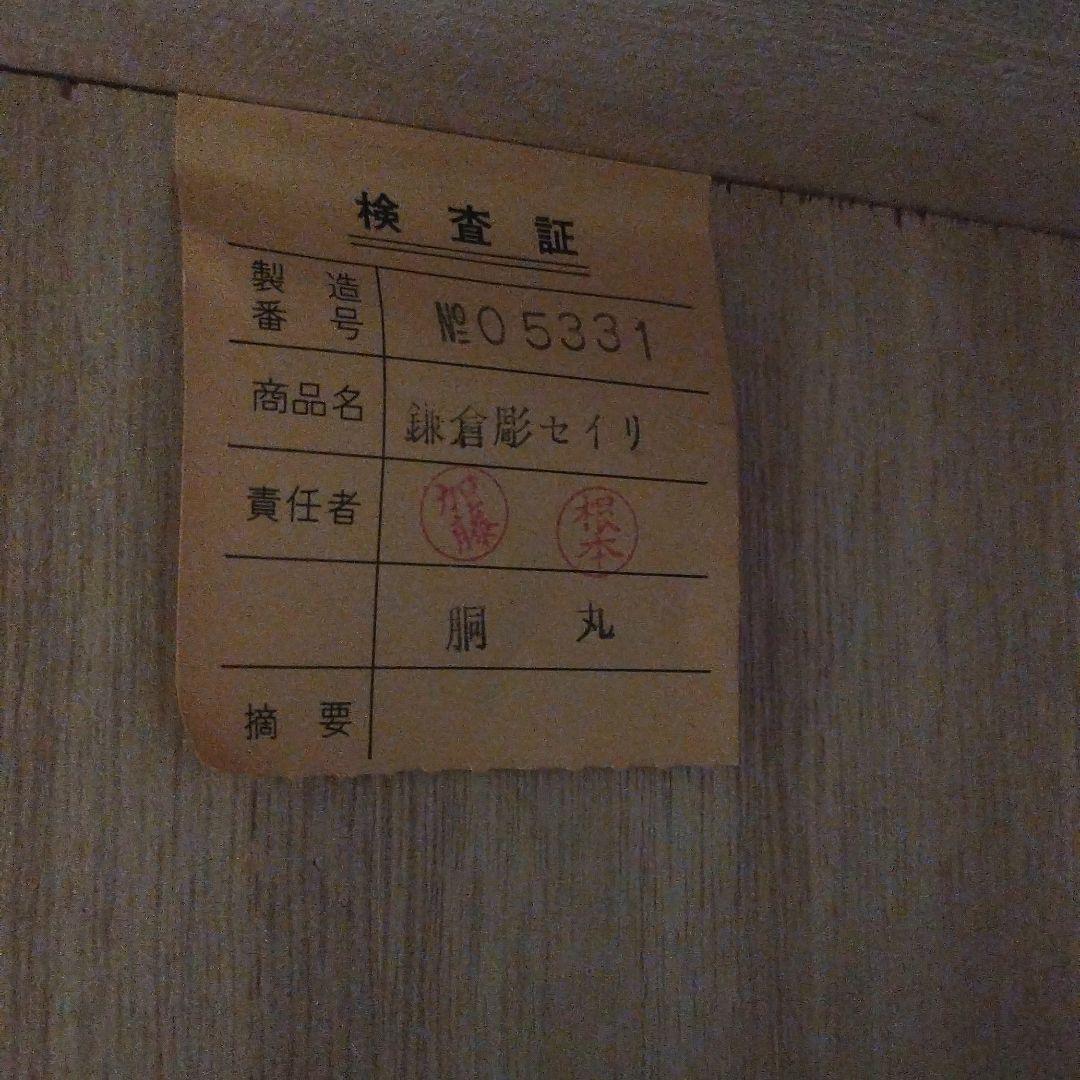 検査証
製造番号 №05331
商品名 鎌倉彫セイリ
責任者 加藤 根本
胴丸
摘要